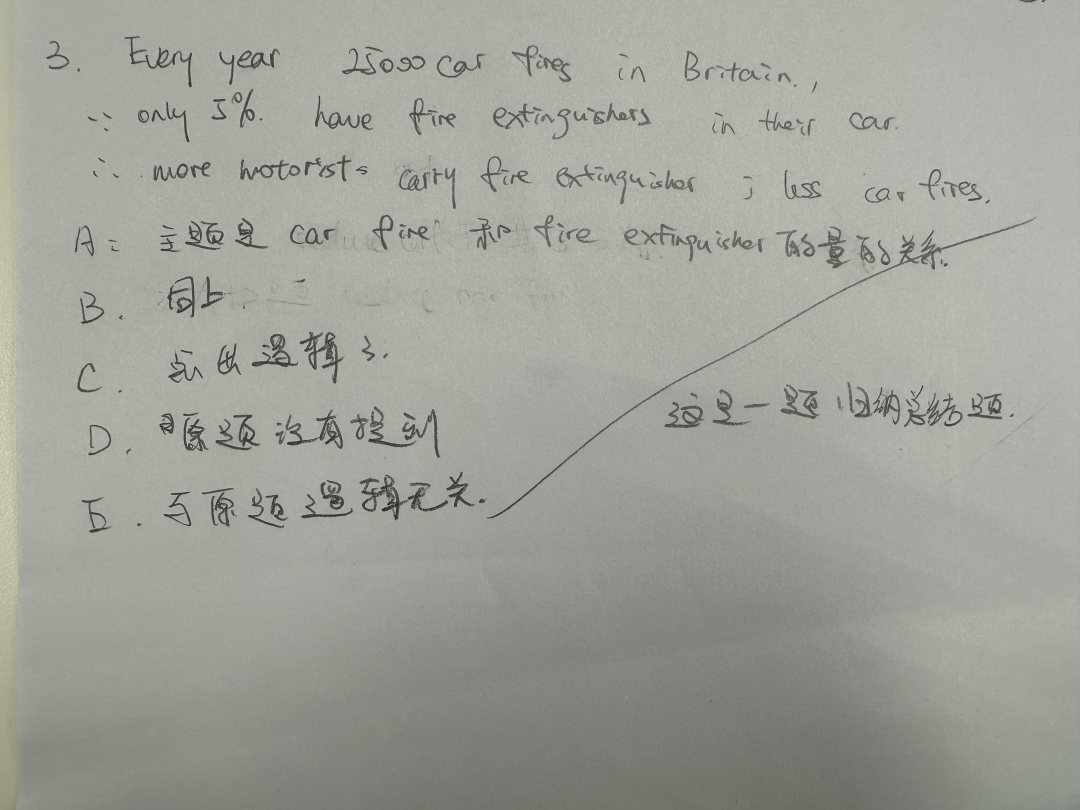 3. Every year 25000 car fires in Britain.,
∵ only 5%. have fire extinguishers in their car.
∴ more motorists carry fire extinguisher ; less car fires.
A: 主题是 car fire 和 fire extinguisher 的量的关系.
B. 同上.
C. 点出逻辑了.
D. 原题没有提到
这是一题归纳总结题.
E. 与原题逻辑无关.